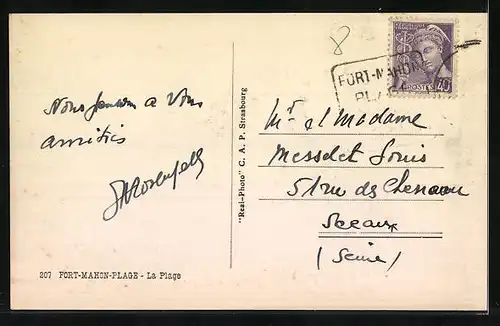 Nous pensons a Vous
amitiés
FORT-MAHON
PLAGE
REPUBLIQUE
POSTES
40
Mr et Madame
Messdet Louis
51 rue de Cheneau
Sceaux
(Seine)
"Real-Photo" C. A. P. Strasbourg
207 FORT-MAHON-PLAGE - La Plage